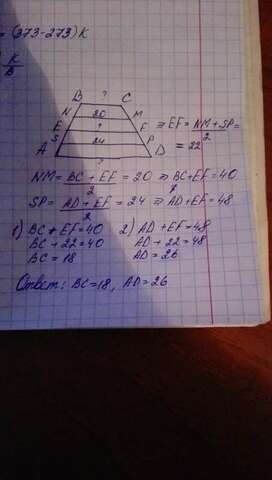 = (373-273) K
K
B
B ? C
N 20 M
E ? F
S 24 P
A ? D
⇒ EF = NM + SP =
2
= 22
NM = BC + EF = 20 ⇒ BC + EF = 40
2
SP = AD + EF = 24 ⇒ AD + EF = 48
2
1) BC + EF = 40 2) AD + EF = 48
BC + 22 = 40 AD + 22 = 48
BC = 18 AD = 26
Ответ: BC = 18, AD = 26